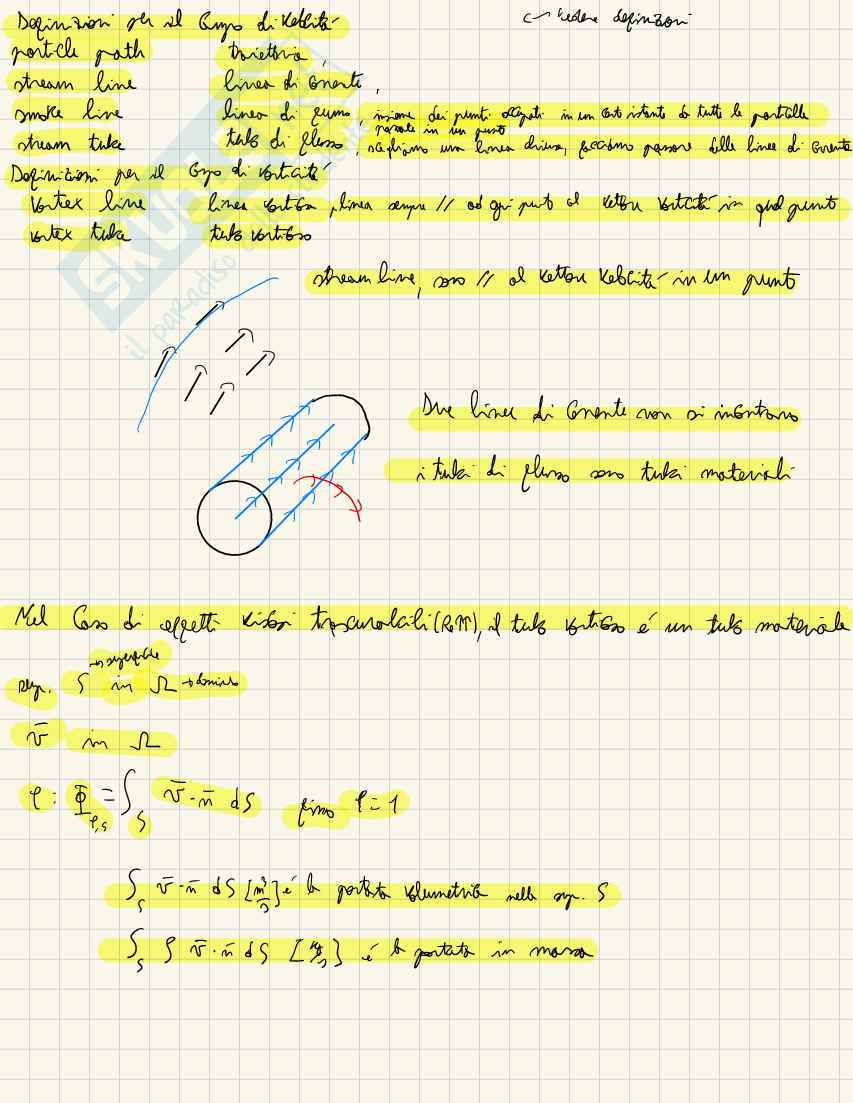 Definizioni per il Campo di Velocità
↳ vedere definizioni
particle path traiettoria,
stream line linea di Corrente,
smoke line linea di fumo, insieme dei punti occupati in un certo istante da tutte le particelle
passate in un punto
stream tube tubo di flusso, scegliamo una linea chiusa, facciamo passare delle linee di Corrente
Definizioni per il Campo di Vorticità
Vortex line linea vorticosa, linea sempre // ad ogni punto al vettore Vorticità in quel punto
vortex tube tubo vorticoso
stream line, sono // al vettore Velocità in un punto
SKUOLA
il paradiso dello studente
Due linee di Corrente non si incontrano
i tubi di flusso sono tubi materiali
Nel Caso di effetti viscosi trascurabili (Re↑↑), il tubo vorticoso é un tubo materiale
→ superficie
sup. S in Ω → dominio
v̄ in Ω
φ : Φ_φ,S = ∫_S v̄ · n̄ dS fisso φ = 1
∫_S v̄ · n̄ dS [m³/s] é la portata volumetrica nella sup. S
∫_S ρ v̄ · n̄ dS [kg/s] é la portata in massa